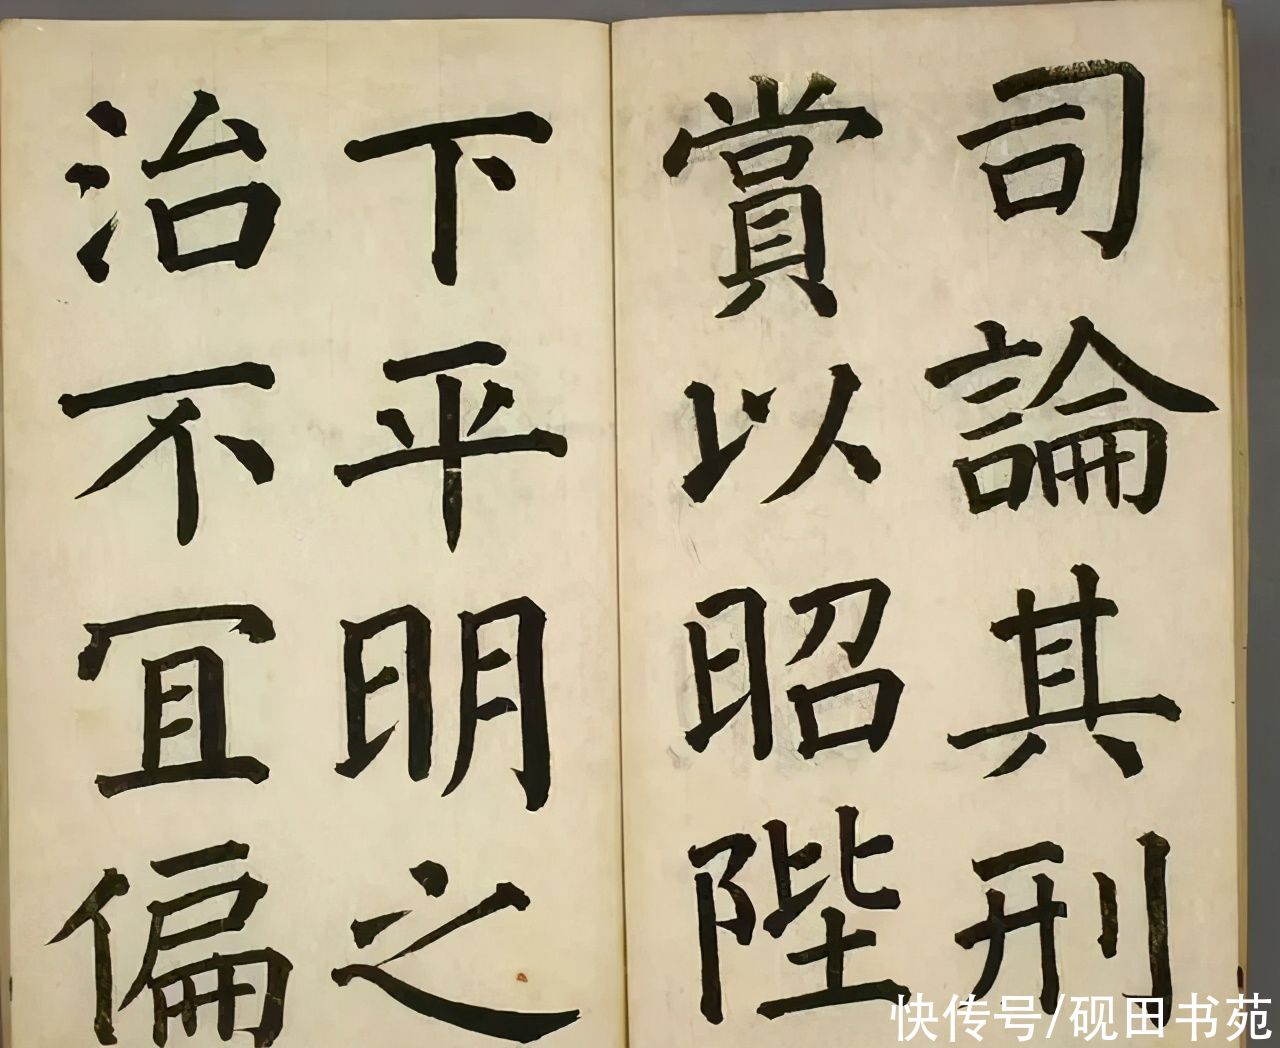 司論其刑
賞以昭陛
下平明之
治不冝偏
快传号/砚田书苑